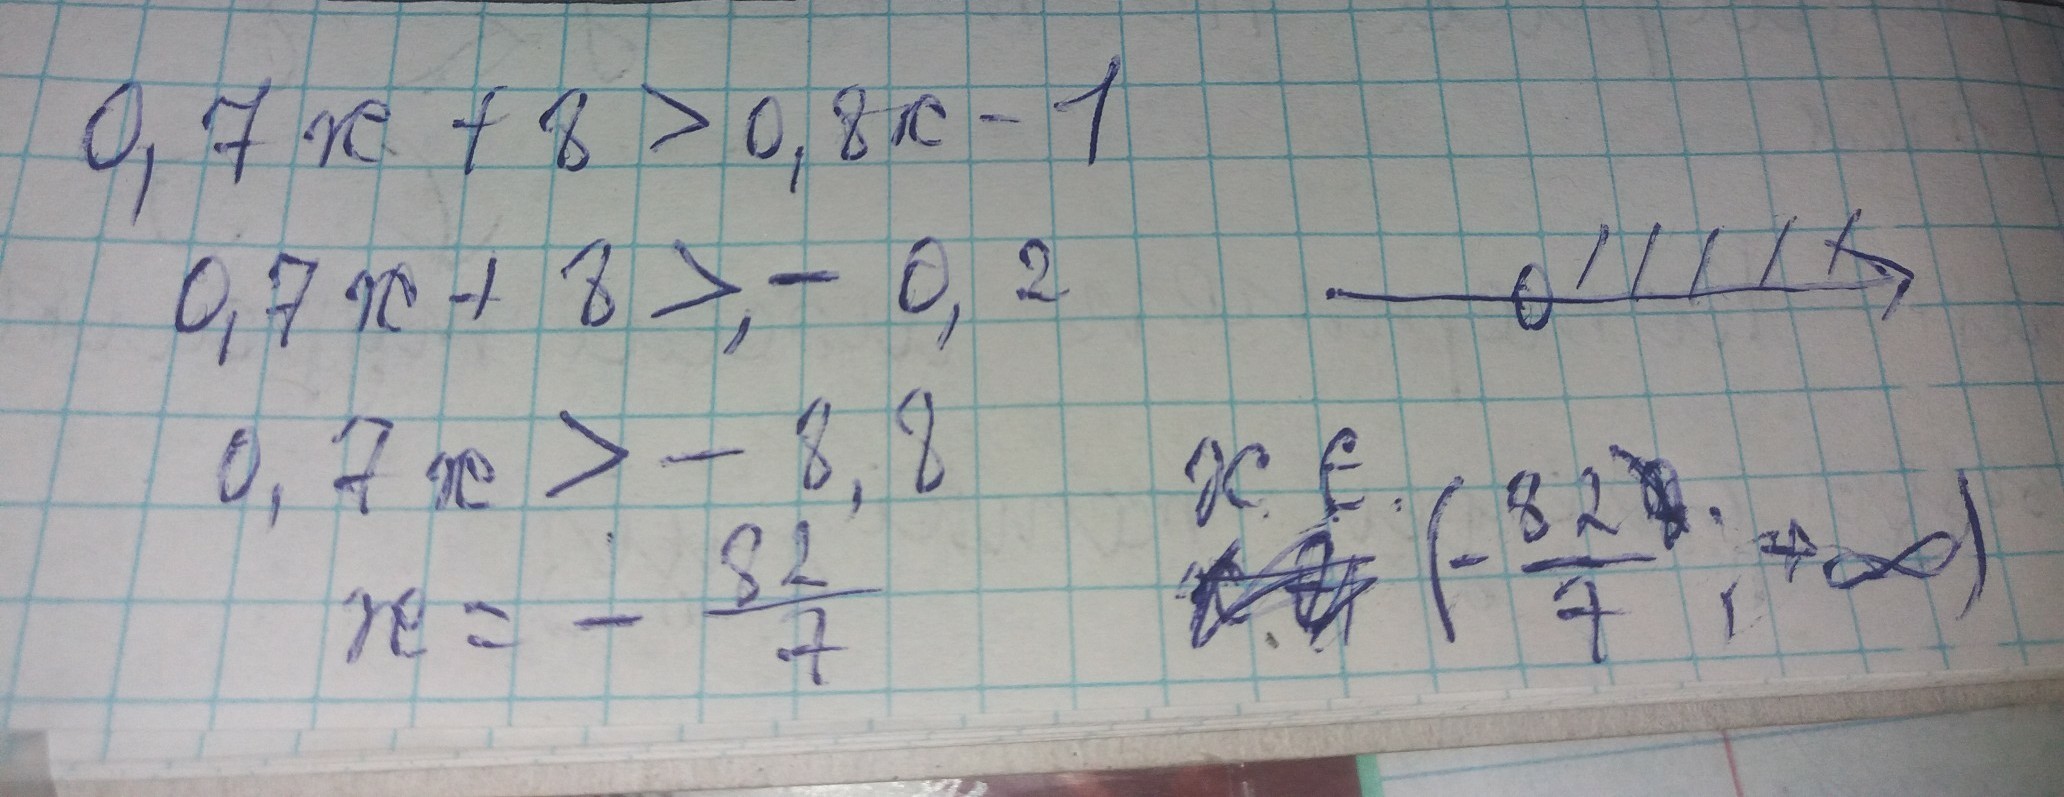 0,7x + 8 > 0,8x - 1
0,7x + 8 >, - 0,2
0,7x > - 8,8
x = - 82/7
x ∈ (- 82/7 ; +∞)